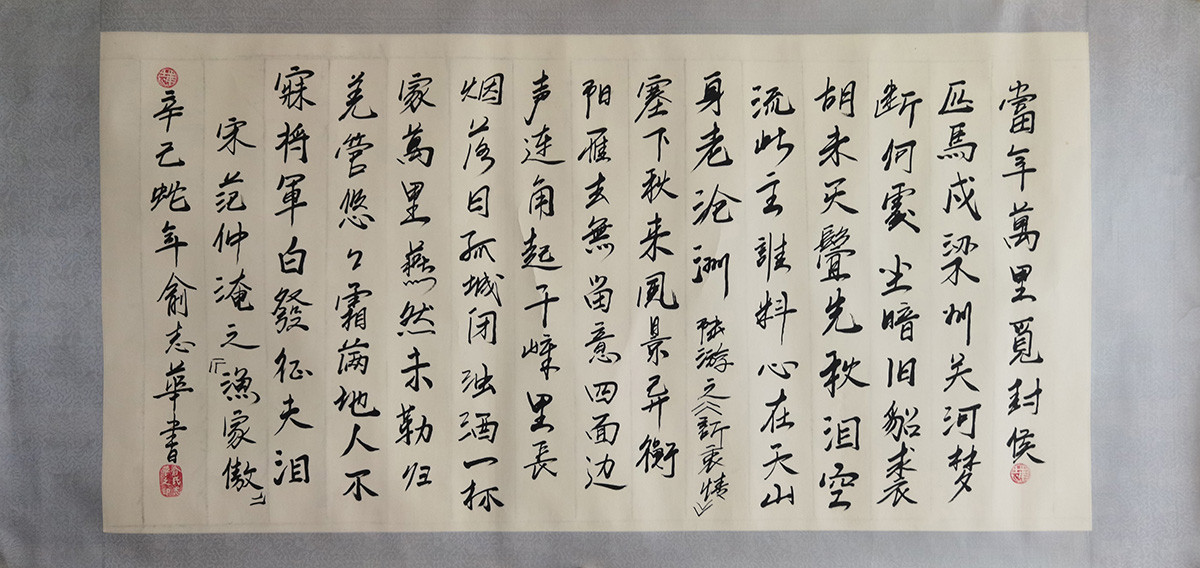 當年萬里覓封侯
匹馬戍梁州关河梦
断何處尘暗旧貂裘
胡未灭鬢先秋泪空
流此生誰料心在天山
身老沧洲 陆游之《訴衷情》
塞下秋来風景异衡
阳雁去無留意四面边
声连角起千嶂里長
烟落日孤城闭浊酒一杯
家萬里燕然未勒归
羌管悠々霜满地人不
寐将軍白發征夫泪
宋范仲淹之「漁家傲」
辛己蛇年俞志華書